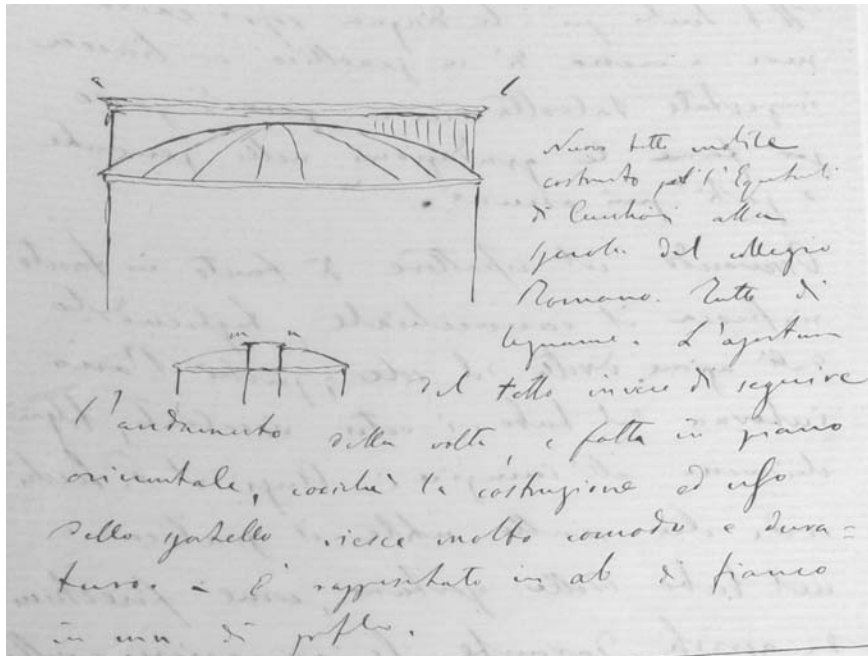 a b
Nuovo tetto mobile
costruito per l'Equatoriale
di Cauchoix alla
specola del Collegio
Romano. Tutto di
legname. L'apertura
m n
del tetto invece di seguire
l'andamento della volta, è fatta in piano
orizzontale, cosichè la costruzione ed uso
dello sportello riesce molto comodo e dura=
turo. – E' rappresentato in ab di fianco
in mn di profilo.